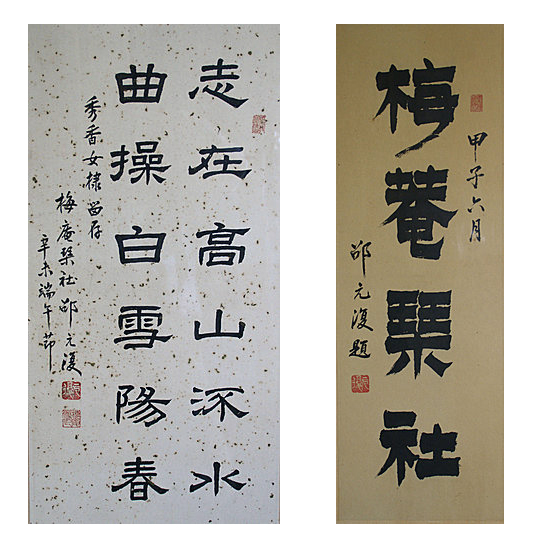 甲子六月
梅菴琹社
邵元復題
志在高山㳅水
曲操白雪陽春
秀香女棣留存
梅庵琹社邵元復
辛未端午節